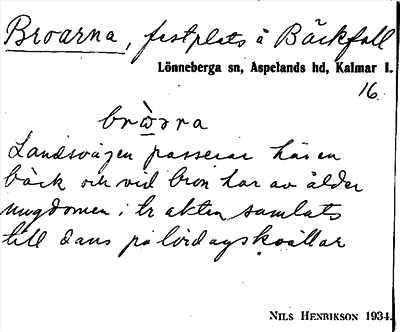 Broarna, festplats å Bäckfall
Lönneberga sn, Aspelands hd, Kalmar l.
16.
bròω̲ra
Landsvägen passerar här en
bäck och vid bron har av ålder
ungdomen i trakten samlats
till dans på lördagskvällar
NILS HENRIKSON 1934.